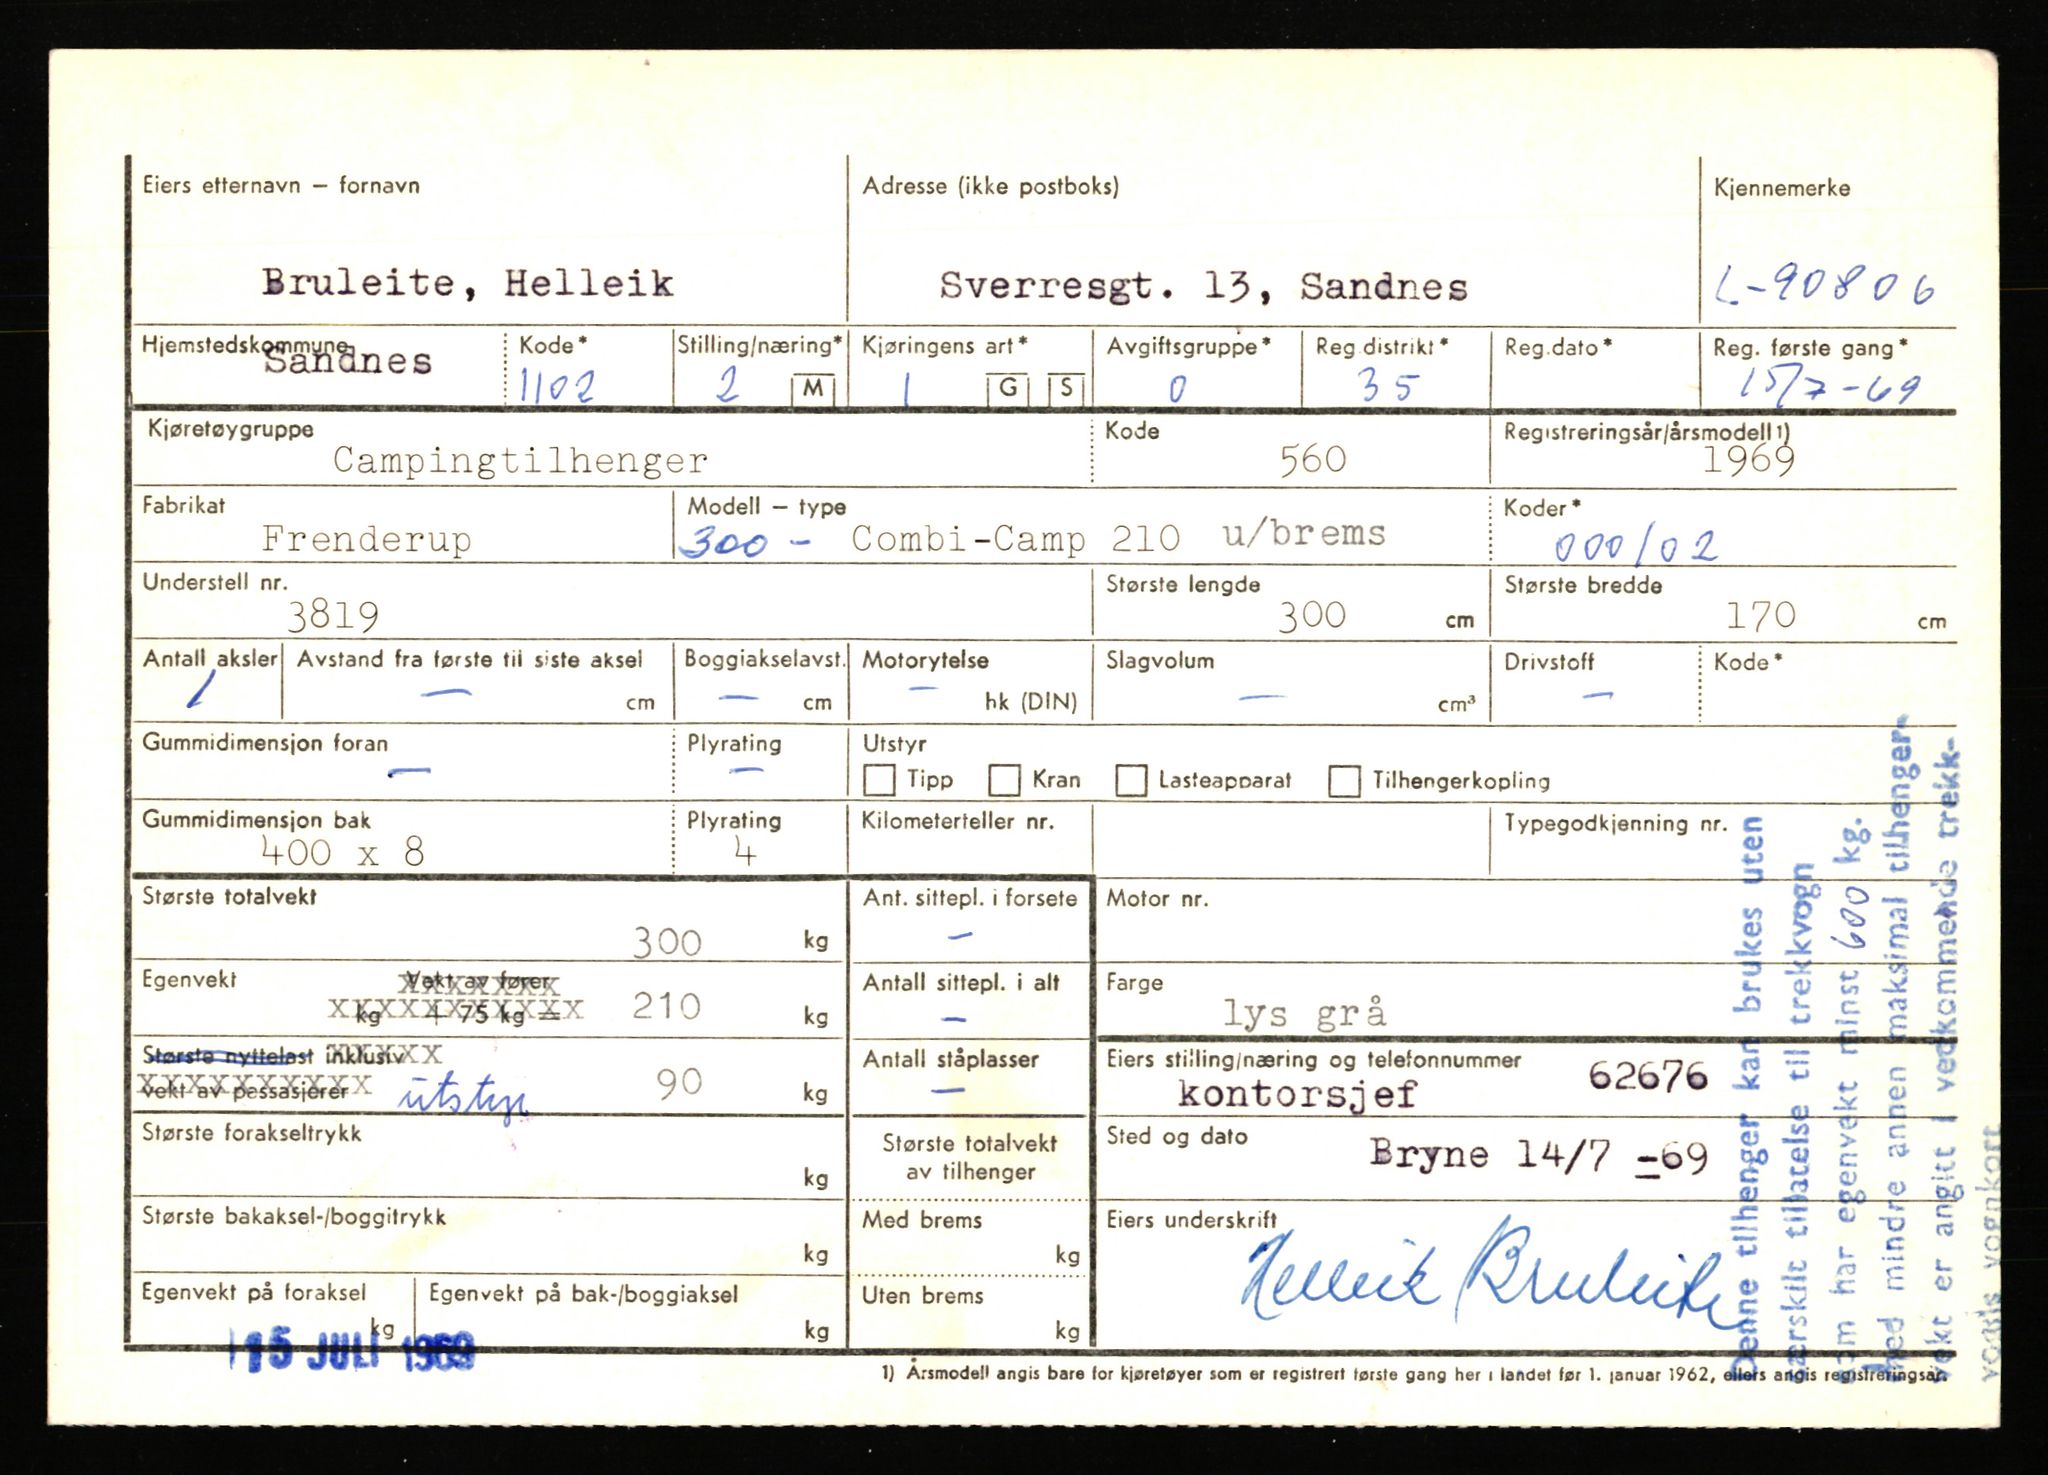 Eiers etternavn – fornavn
Adresse (ikke postboks)
Kjennemerke
Bruleite, Helleik
Sverresgt. 13, Sandnes
L-90806
Hjemstedskommune
Kode*
Stilling/næring*
Kjøringens art*
Avgiftsgruppe*
Reg.distrikt*
Reg.dato*
Reg. første gang*
Sandnes
1102
2 M
1 G S
0
35
15/7-69
Kjøretøygruppe
Kode
Registreringsår/årsmodell 1)
Campingtilhenger
560
1969
Fabrikat
Modell – type
Koder*
Frenderup
300 - Combi-Camp 210 u/brems
000/02
Understell nr.
Største lengde
Største bredde
3819
300 cm
170 cm
Antall aksler
Avstand fra første til siste aksel
Boggiakselavst.
Motorytelse
Slagvolum
Drivstoff
Kode*
1
— cm
— cm
— hk (DIN)
— cm³
—
Gummidimensjon foran
Plyrating
Utstyr
—
—
Tipp Kran Lasteapparat Tilhengerkopling
Gummidimensjon bak
Plyrating
Kilometerteller nr.
Typegodkjenning nr.
400 x 8
4
Største totalvekt
Ant. sittepl. i forsete
Motor nr.
300 kg
—
Egenvekt
Vekt av fører
Antall sittepl. i alt
Farge
kg + 75 kg =
210 kg
—
lys grå
Største nyttelast inklusiv
Antall ståplasser
Eiers stilling/næring og telefonnummer
vekt av passasjerer
utstyr
90 kg
—
kontorsjef
62676
Største forakseltrykk
Største totalvekt
av tilhenger
Sted og dato
kg
Bryne 14/7 -69
Største bakaksel-/boggitrykk
Med brems
Eiers underskrift
kg
kg
Helleik Bruleite
Egenvekt på foraksel
Egenvekt på bak-/boggiaksel
Uten brems
kg
kg
kg
15 JULI 1969
1) Årsmodell angis bare for kjøretøyer som er registrert første gang her i landet før 1. januar 1962, ellers angis registreringsår.
Denne tilhenger kan brukes uten
særskilt tillatelse til trekkvogn
som har egenvekt minst 600 kg.
med mindre annen maksimal tilhenger-
vekt er angitt i vedkommende trekk-
vogns vognkort